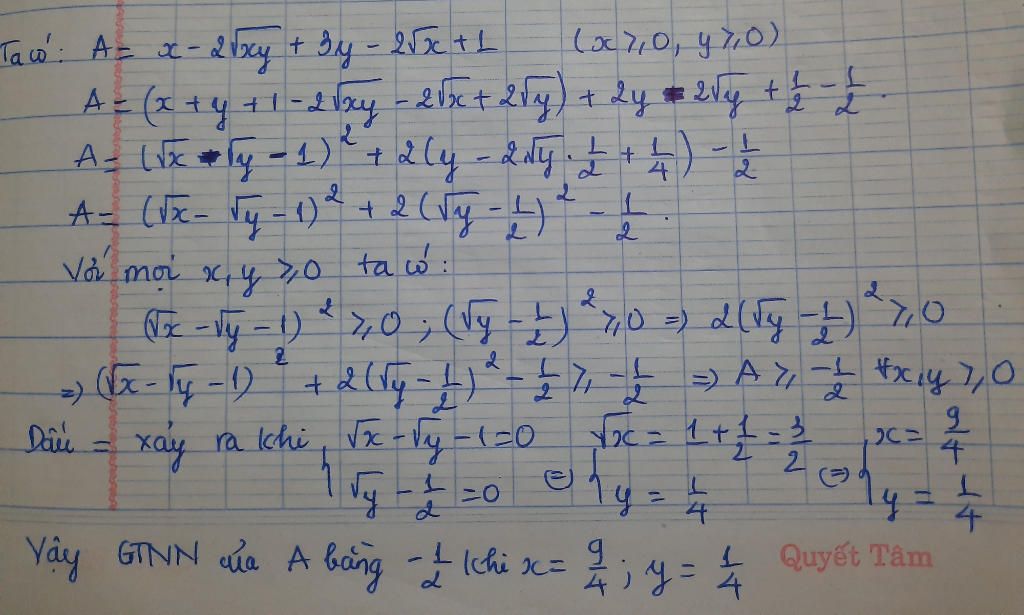 Ta có: A = x - 2√xy + 3y - 2√x + 1 (x ⩾ 0, y ⩾ 0)
A = (x + y + 1 - 2√xy - 2√x + 2√y) + 2y - 2√y + 1/2 - 1/2.
A = (√x - √y - 1)² + 2(y - 2√y . 1/2 + 1/4) - 1/2
A = (√x - √y - 1)² + 2(√y - 1/2)² - 1/2.
Với mọi x, y ⩾ 0 ta có:
(√x - √y - 1)² ⩾ 0 ; (√y - 1/2)² ⩾ 0 => 2(√y - 1/2)² ⩾ 0
=> (√x - √y - 1)² + 2(√y - 1/2)² - 1/2 ⩾ -1/2 => A ⩾ -1/2 ∀x,y ⩾ 0
Dấu = xảy ra khi { √x - √y - 1 = 0 √x = 1 + 1/2 = 3/2 x = 9/4
√y - 1/2 = 0 <=> { y = 1/4 <=> { y = 1/4
Vậy GTNN của A bằng -1/2 khi x = 9/4 ; y = 1/4 Quyết Tâm